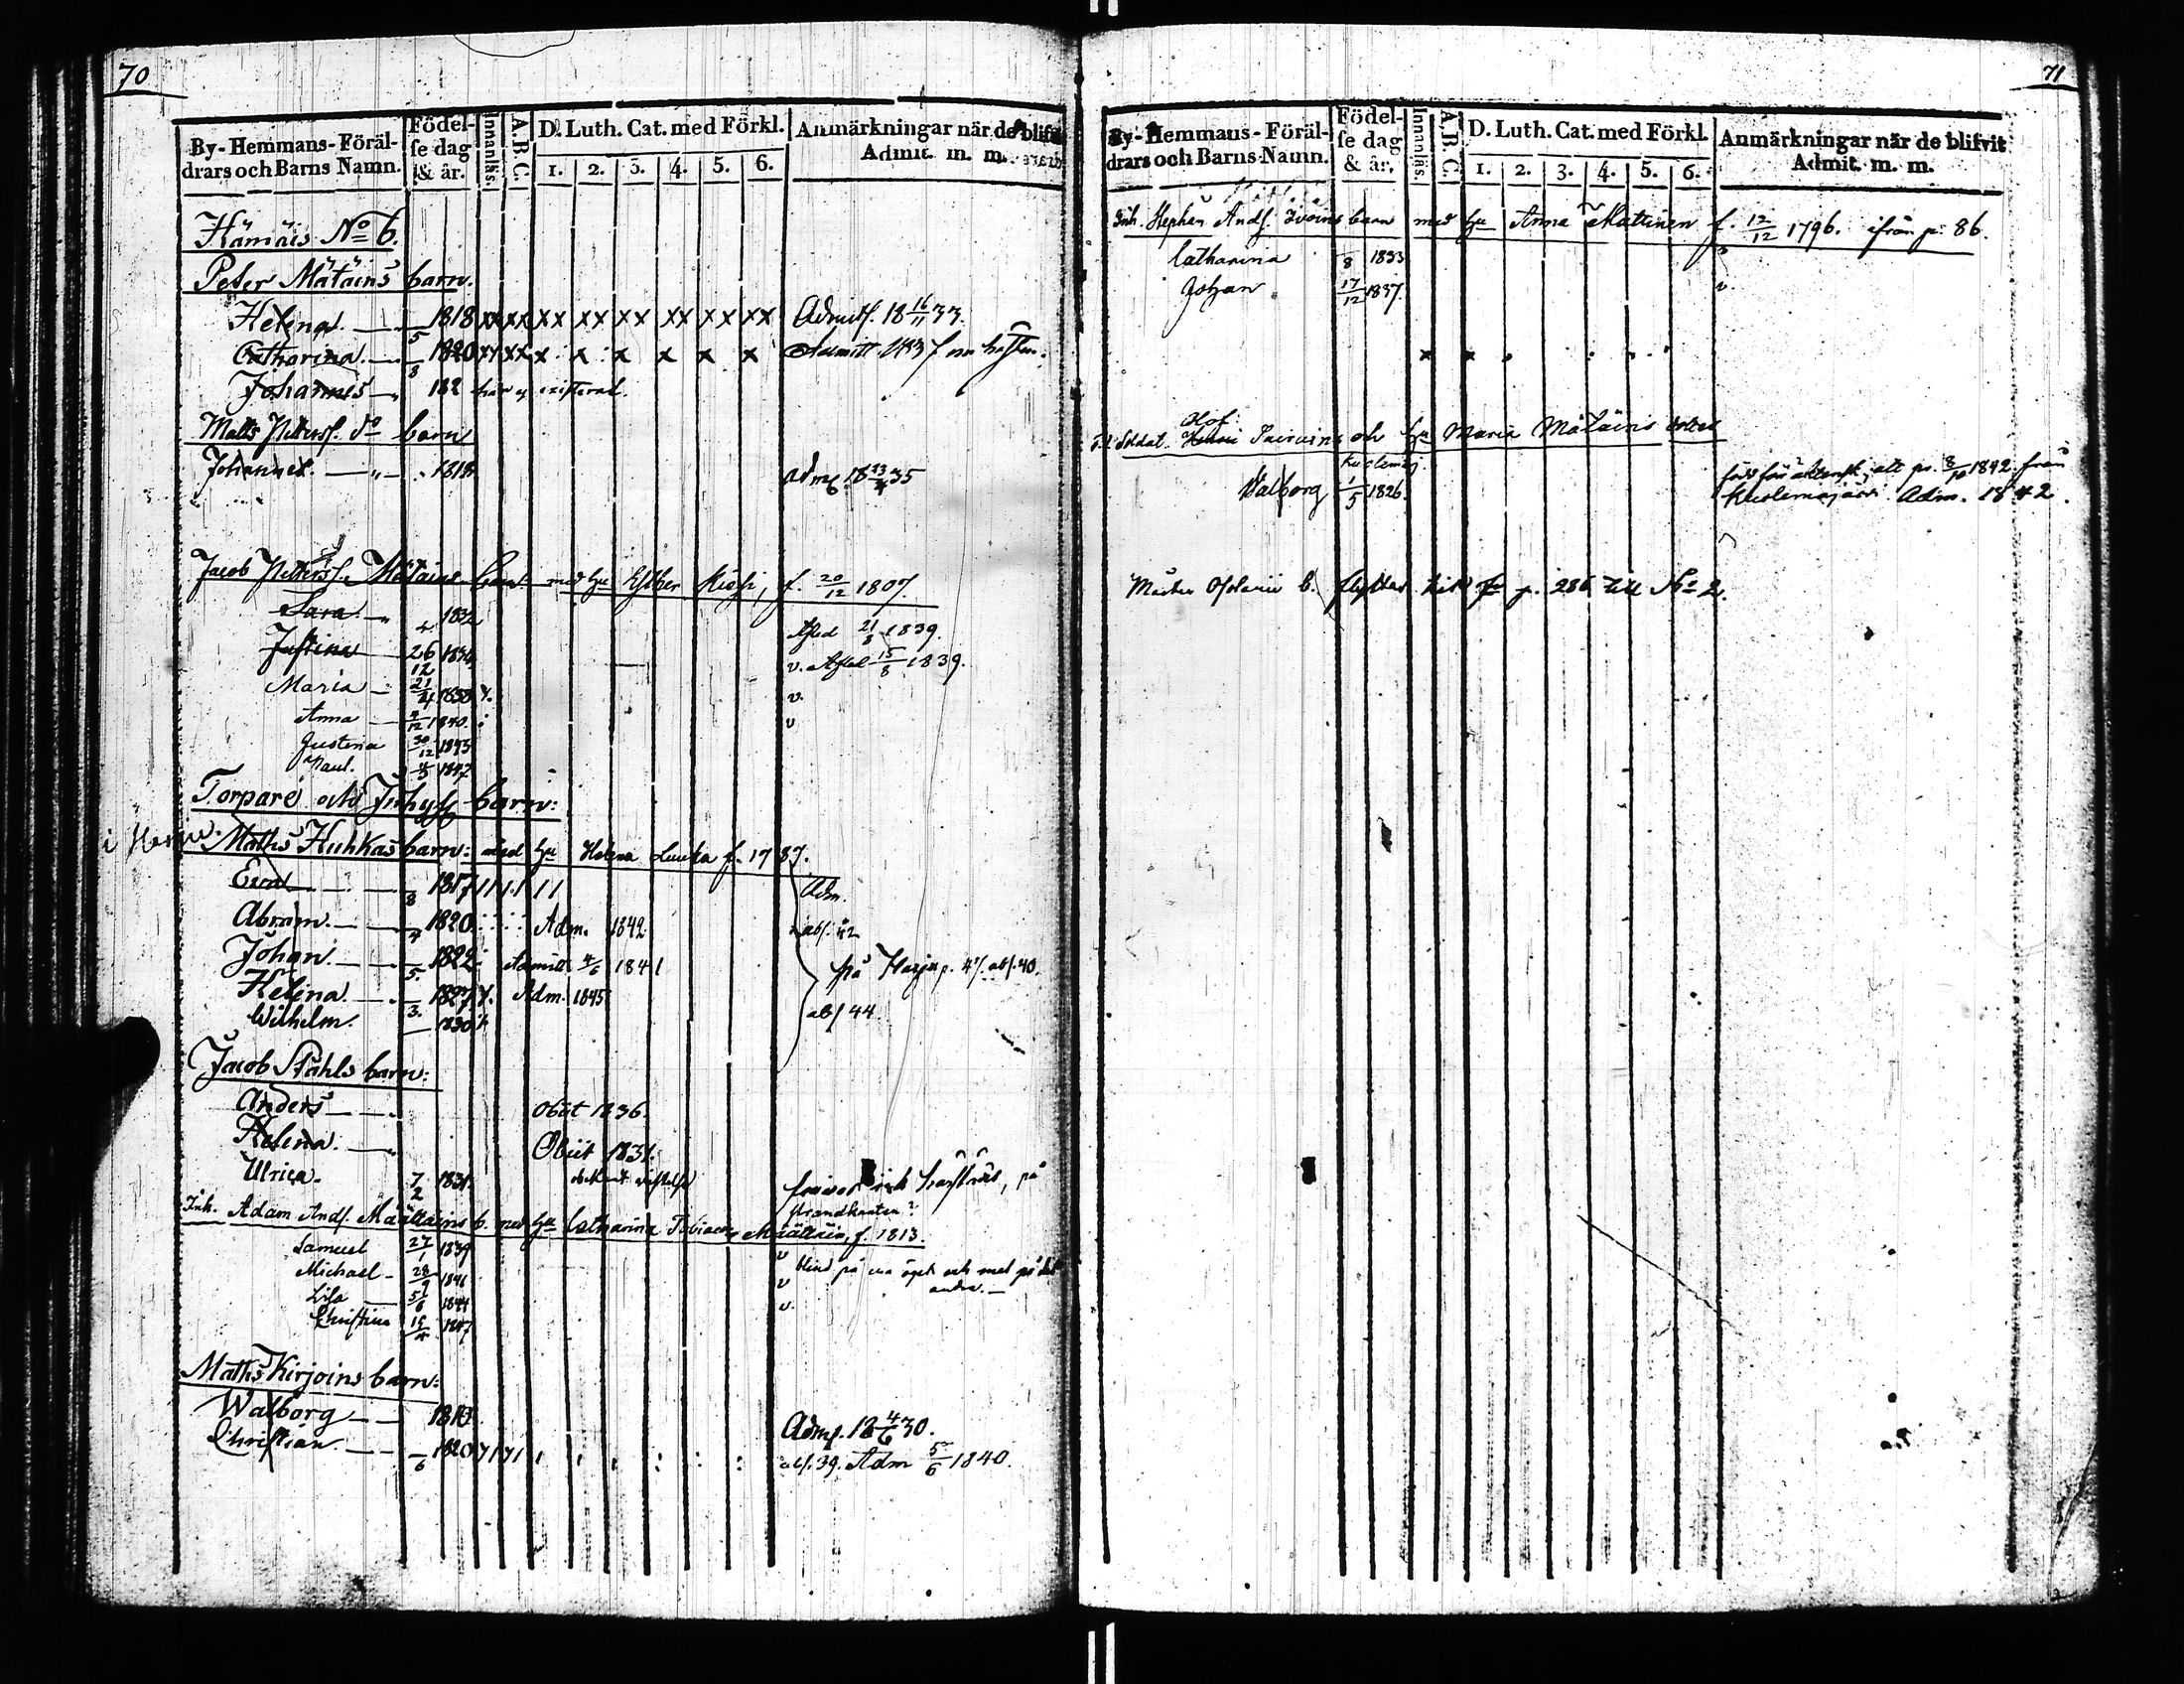 70
By-Hemmans-Föräl-
drars och Barns Namn.
Födel-
se dag
& år.
Innanläs.
A. B. C.
D. Luth. Cat. med Förkl.
1. 2. 3. 4. 5. 6.
Anmärkningar när de blifvit
Admit. m. m.
Hämäis No 6.
Peter Mätäins barn.
Helena. 5 1818 xx xx xx xx xx xx xx xx Admitt. 18 16/11 33.
Catharina. 8 1820 xx xx x x x x x x Admitt. 1837
Johannes 182 har ej existerat.
Matts Petterss. do barn
Johannes. 1818 adm. 18 23/4 35
Jacob Petterss. Mätäins barn med hu Esther Kiesi, f. 20/12 1807.
Sara. 4 1832 Afled 21/8 1839.
Justina 26/12 1834 v. Afled 15/8 1839.
Maria 21/4 1838 v.
Anna 9/12 1840. v
Justina 30/12 1843
Paul. 4/5 1847
Torpare och Inhys barn:
Maths Huhkas barn: med hu Helena Luuka f. 1787.
Eva 8 1817 Adm.
Abram. 4 1820 Adm. 1842 abs. 42
Johan. 5. 1822 Admitt 4/6 1841 på Harju p. 47. abs. 40.
Helena. 3. 1827 Adm. 1845
Wilhelm. 1830 abs 44
Jacob Ståhls barn:
Anders obiit 1836.
Helena. Obiit 1831.
Ulrica. 7/2 1831. obekant vistelse
på
strandkanten?
Inh. Adam Ands. Määttäins b. med hu Catharina Tobiaed. Määttäin, f. 1813.
Samuel 27/1 1839 v
Michael 28/9 1841 v blind på ena ögat och met på det
andra.
Lisa 5/6 1844 v.
Christina 15/4 1847
Maths Kirjoins barn:
Walborg 1813 Adm. 18 4/6 30.
Christian 6 1820 abs. 39. Adm 5/6 1840.
71
By-Hemmans-Föräl-
drars och Barns Namn.
Födel-
se dag
& år.
Innanläs.
A. B. C.
D. Luth. Cat. med Förkl.
1. 2. 3. 4. 5. 6.
Anmärkningar när de blifvit
Admit. m. m.
Inh. Stephan Ands. Ivoins barn med hu Anna Mattinen f. 12/12 1796. ifrån p. 86.
Catharina 8 1833
Johan 17/12 1837. v
Olof
Soldat. Henric Pairvins och hu Maria Mätäins dotter
Walborg 1/5 1826.
att pr. 8/10 1842 från
Kuolemajärvi. Adm. 1842.
flyttar hit fr p. 286 till No 2.